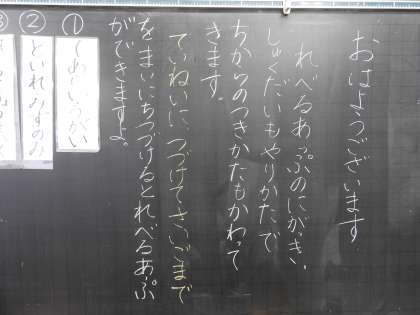 おはようございます。
れべるあっぷのにがっき。
しゅくだいもやりかたで
ちからのつきかたもかわって
きます。
ていねいに、つづけてさいごまで
をまいにちつづけるとれべるあっぷ
ができますよ。
①
②
といれ みずのみ